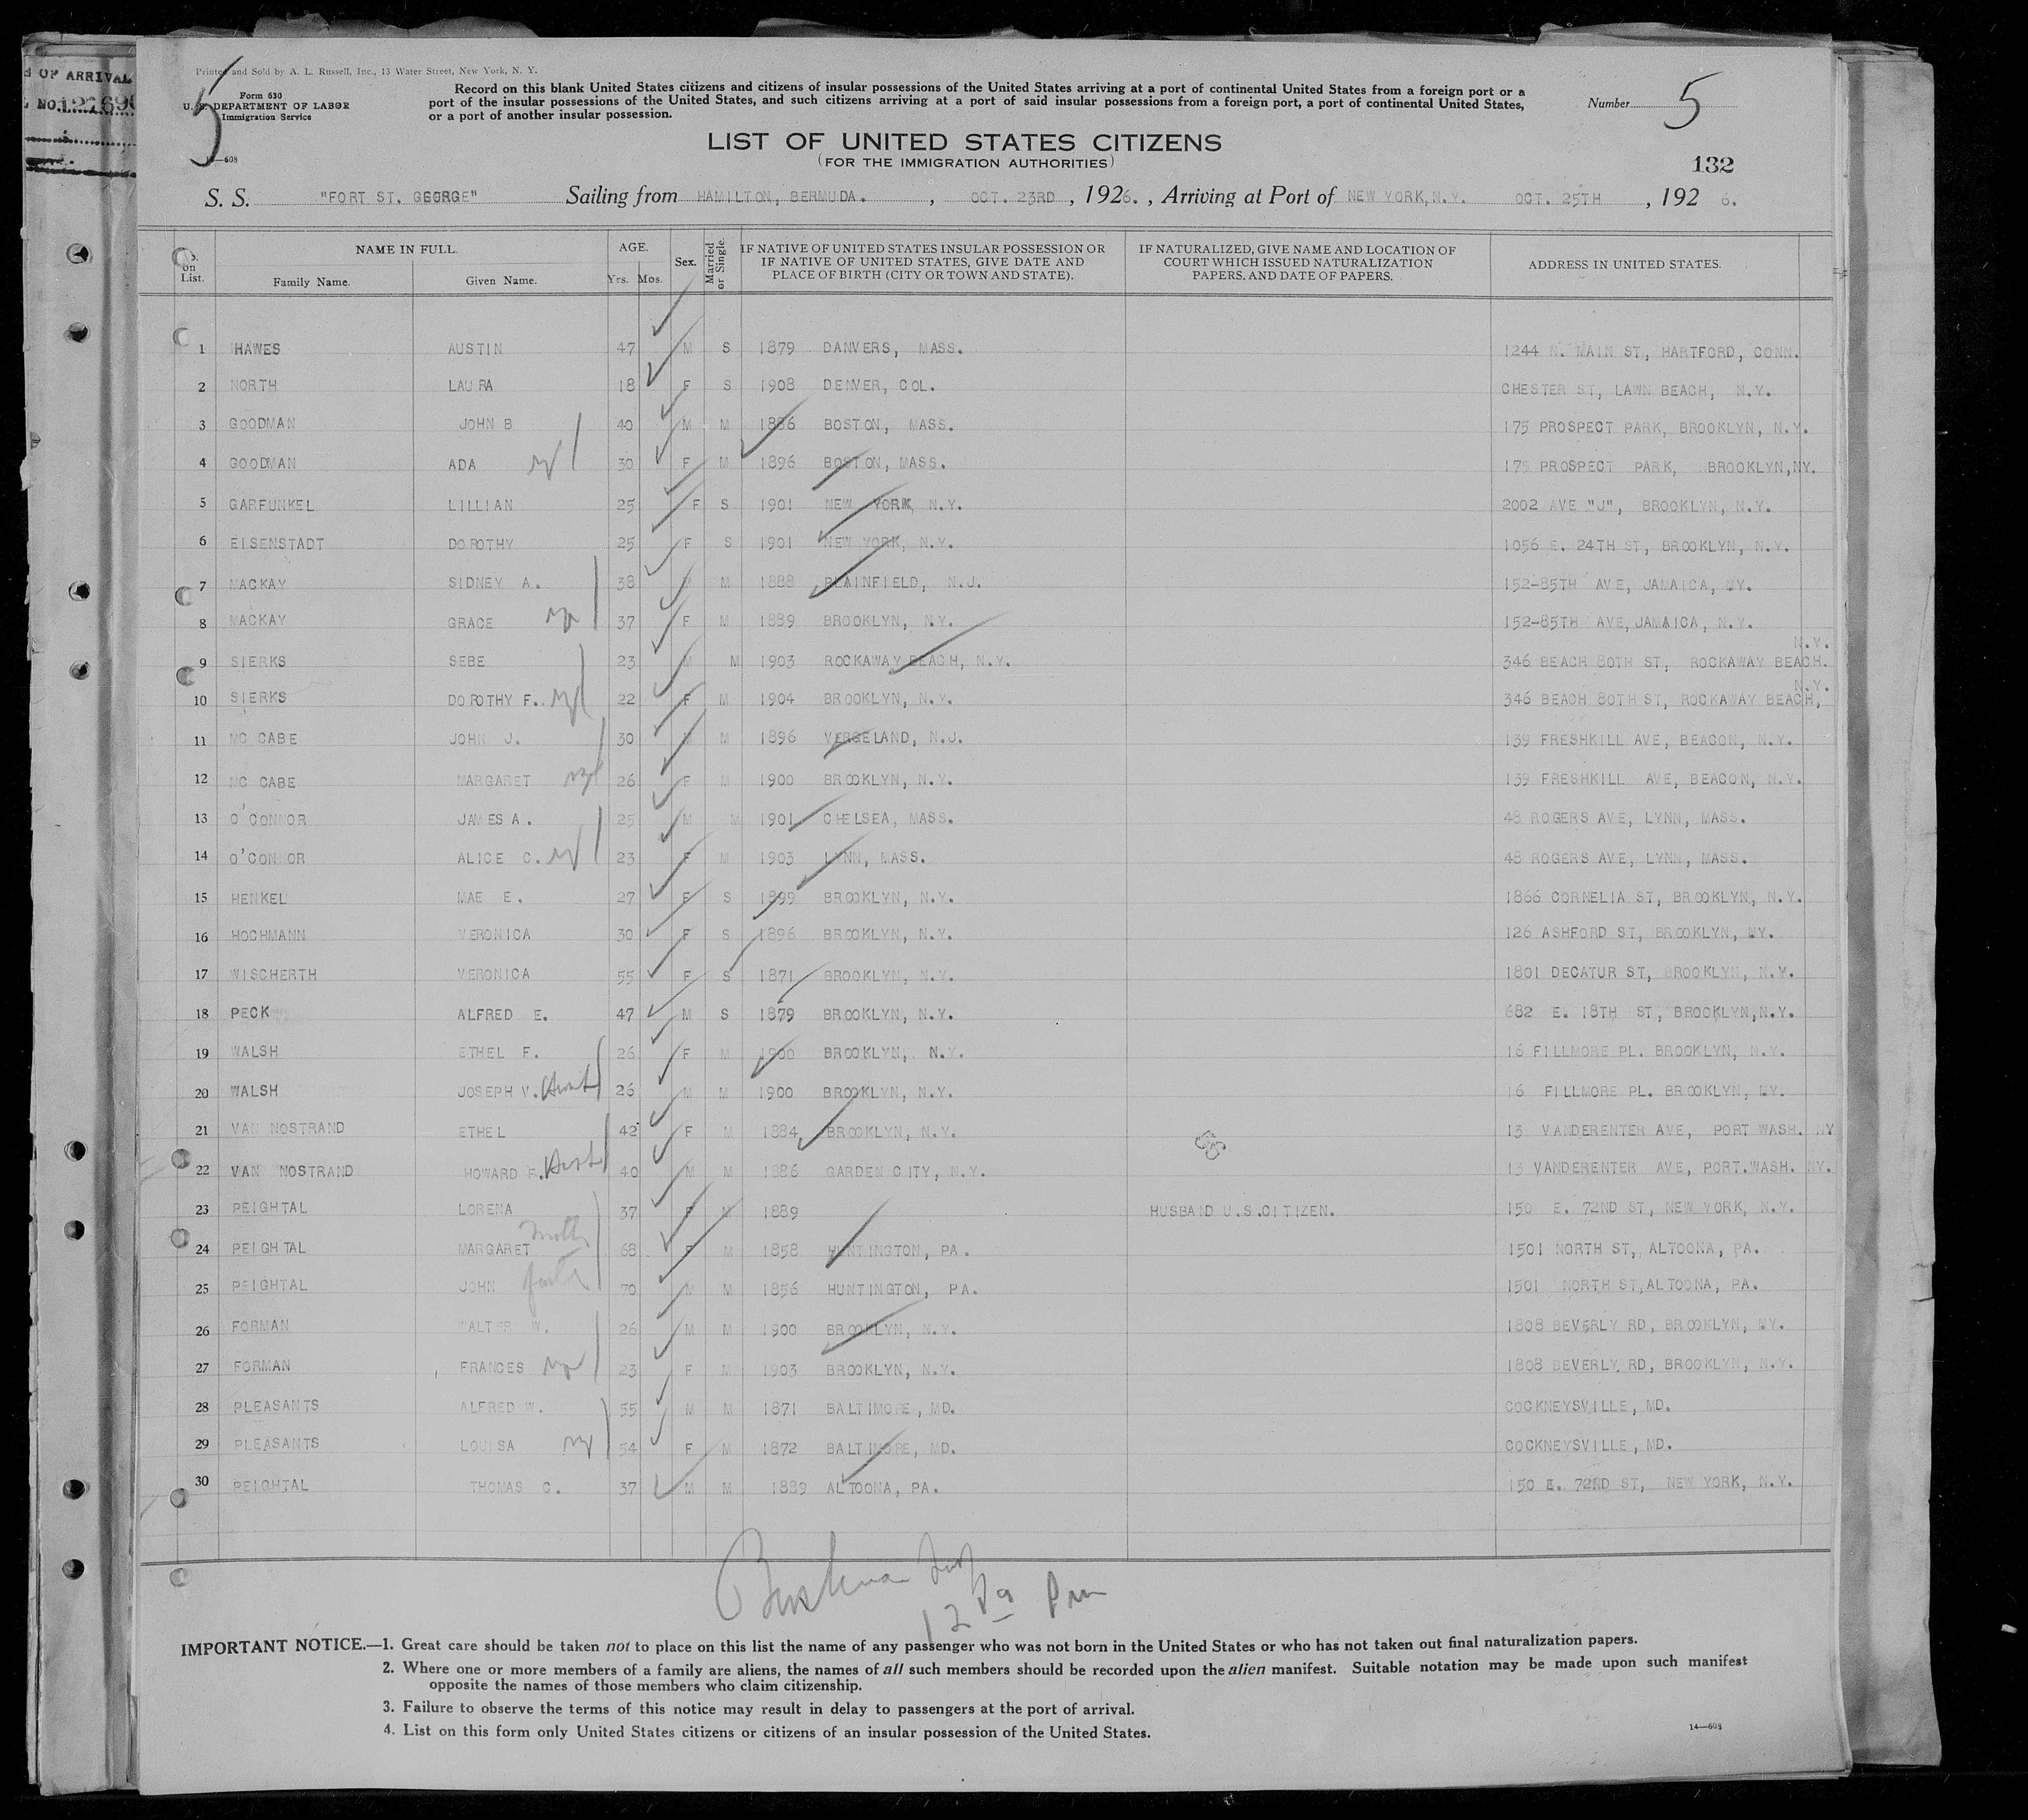 OF ARRIVAL
NO. 12769
5
Printed and Sold by A. L. Russell, Inc., 13 Water Street, New York, N. Y.
Form 630
U. S. DEPARTMENT OF LABOR
Immigration Service
14—608
Record on this blank United States citizens and citizens of insular possessions of the United States arriving at a port of continental United States from a foreign port or a
port of the insular possessions of the United States, and such citizens arriving at a port of said insular possessions from a foreign port, a port of continental United States,
or a port of another insular possession.
Number 5
LIST OF UNITED STATES CITIZENS
(FOR THE IMMIGRATION AUTHORITIES)
132
S. S. "FORT ST. GEORGE" Sailing from HAMILTON, BERMUDA. , OCT. 23RD , 1926. , Arriving at Port of NEW YORK, N.Y. OCT. 25TH , 192 6.
No. on List. NAME IN FULL. Family Name. Given Name. AGE. Yrs. Mos. Sex. Married or Single. IF NATIVE OF UNITED STATES INSULAR POSSESSION OR IF NATIVE OF UNITED STATES, GIVE DATE AND PLACE OF BIRTH (CITY OR TOWN AND STATE). IF NATURALIZED, GIVE NAME AND LOCATION OF COURT WHICH ISSUED NATURALIZATION PAPERS, AND DATE OF PAPERS. ADDRESS IN UNITED STATES.
1 HAWES AUSTIN 47 M S 1879 DANVERS, MASS. 1244 N. MAIN ST, HARTFORD, CONN.
2 NORTH LAURA 18 F S 1908 DENVER, COL. CHESTER ST, LAWN BEACH, N.Y.
3 GOODMAN JOHN B 40 M M 1886 BOSTON, MASS. 175 PROSPECT PARK, BROOKLYN, N.Y.
4 GOODMAN ADA 30 F M 1896 BOSTON, MASS. 175 PROSPECT PARK, BROOKLYN, NY.
5 GARFUNKEL LILLIAN 25 F S 1901 NEW YORK, N.Y. 2002 AVE "J", BROOKLYN, N.Y.
6 EISENSTADT DOROTHY 25 F S 1901 NEW YORK, N.Y. 1056 E. 24TH ST, BROOKLYN, N.Y.
7 MACKAY SIDNEY A. 38 M M 1888 PLAINFIELD, N.J. 152-85TH AVE, JAMAICA, NY.
8 MACKAY GRACE 37 F M 1889 BROOKLYN, N.Y. 152-85TH AVE, JAMAICA, N.Y.
9 SIERKS SEBE 23 M M 1903 ROCKAWAY BEACH, N.Y. 346 BEACH 80TH ST, ROCKAWAY BEACH. N.Y.
10 SIERKS DOROTHY F. 22 F M 1904 BROOKLYN, N.Y. 346 BEACH 80TH ST, ROCKAWAY BEACH, N.Y.
11 MC CABE JOHN J. 30 M M 1896 VERGELAND, N.J. 139 FRESHKILL AVE, BEACON, N.Y.
12 MC CABE MARGARET 26 F M 1900 BROOKLYN, N.Y. 139 FRESHKILL AVE, BEACON, N.Y.
13 O'CONNOR JAMES A. 25 M M 1901 CHELSEA, MASS. 48 ROGERS AVE, LYNN, MASS.
14 O'CONNOR ALICE C. 23 F M 1903 LYNN, MASS. 48 ROGERS AVE, LYNN, MASS.
15 HENKEL MAE E. 27 F S 1899 BROOKLYN, N.Y. 1866 CORNELIA ST, BROOKLYN, N.Y.
16 HOCHMANN VERONICA 30 F S 1896 BROOKLYN, N.Y. 126 ASHFORD ST, BROOKLYN, NY.
17 WISCHERTH VERONICA 55 F S 1871 BROOKLYN, N.Y. 1801 DECATUR ST, BROOKLYN, N.Y.
18 PECK ALFRED E. 47 M S 1879 BROOKLYN, N.Y. 682 E. 18TH ST, BROOKLYN, N.Y.
19 WALSH ETHEL F. 26 F M 1900 BROOKLYN, N.Y. 16 FILLMORE PL. BROOKLYN, N.Y.
20 WALSH JOSEPH V. 26 M M 1900 BROOKLYN, N.Y. 16 FILLMORE PL. BROOKLYN, NY.
21 VAN NOSTRAND ETHEL 42 F M 1884 BROOKLYN, N.Y. 13 VANDERENTER AVE, PORT WASH. NY
22 VAN NOSTRAND HOWARD F. 40 M M 1886 GARDEN CITY, N.Y. 13 VANDERENTER AVE, PORT.WASH. NY.
23 PEIGHTAL LORENA 37 F M 1889 HUSBAND U.S.CITIZEN. 150 E. 72ND ST, NEW YORK, N.Y.
24 PEIGHTAL MARGARET 68 F M 1858 HUNTINGTON, PA. 1501 NORTH ST, ALTOONA, PA.
25 PEIGHTAL JOHN 70 M M 1856 HUNTINGTON, PA. 1501 NORTH ST, ALTOONA, PA.
26 FORMAN WALTER W. 26 M M 1900 BROOKLYN, N.Y. 1808 BEVERLY RD, BROOKLYN, NY.
27 FORMAN FRANCES 23 F M 1903 BROOKLYN, N.Y. 1808 BEVERLY RD, BROOKLYN, N.Y.
28 PLEASANTS ALFRED W. 55 M M 1871 BALTIMORE, MD. COCKNEYSVILLE, MD.
29 PLEASANTS LOUISA 54 F M 1872 BALTIMORE, MD. COCKNEYSVILLE, MD.
30 PEIGHTAL THOMAS C. 37 M M 1889 ALTOONA, PA. 150 E. 72ND ST, NEW YORK, N.Y.
IMPORTANT NOTICE.—1. Great care should be taken not to place on this list the name of any passenger who was not born in the United States or who has not taken out final naturalization papers.
2. Where one or more members of a family are aliens, the names of all such members should be recorded upon the alien manifest. Suitable notation may be made upon such manifest
opposite the names of those members who claim citizenship.
3. Failure to observe the terms of this notice may result in delay to passengers at the port of arrival.
4. List on this form only United States citizens or citizens of an insular possession of the United States.
14—608